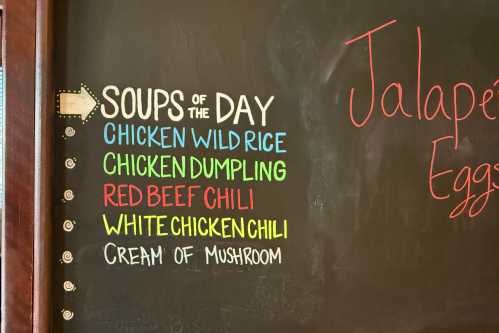 SOUPS OF THE DAY
CHICKEN WILD RICE
CHICKEN DUMPLING
RED BEEF CHILI
WHITE CHICKEN CHILI
CREAM OF MUSHROOM
Jalape
Eggs